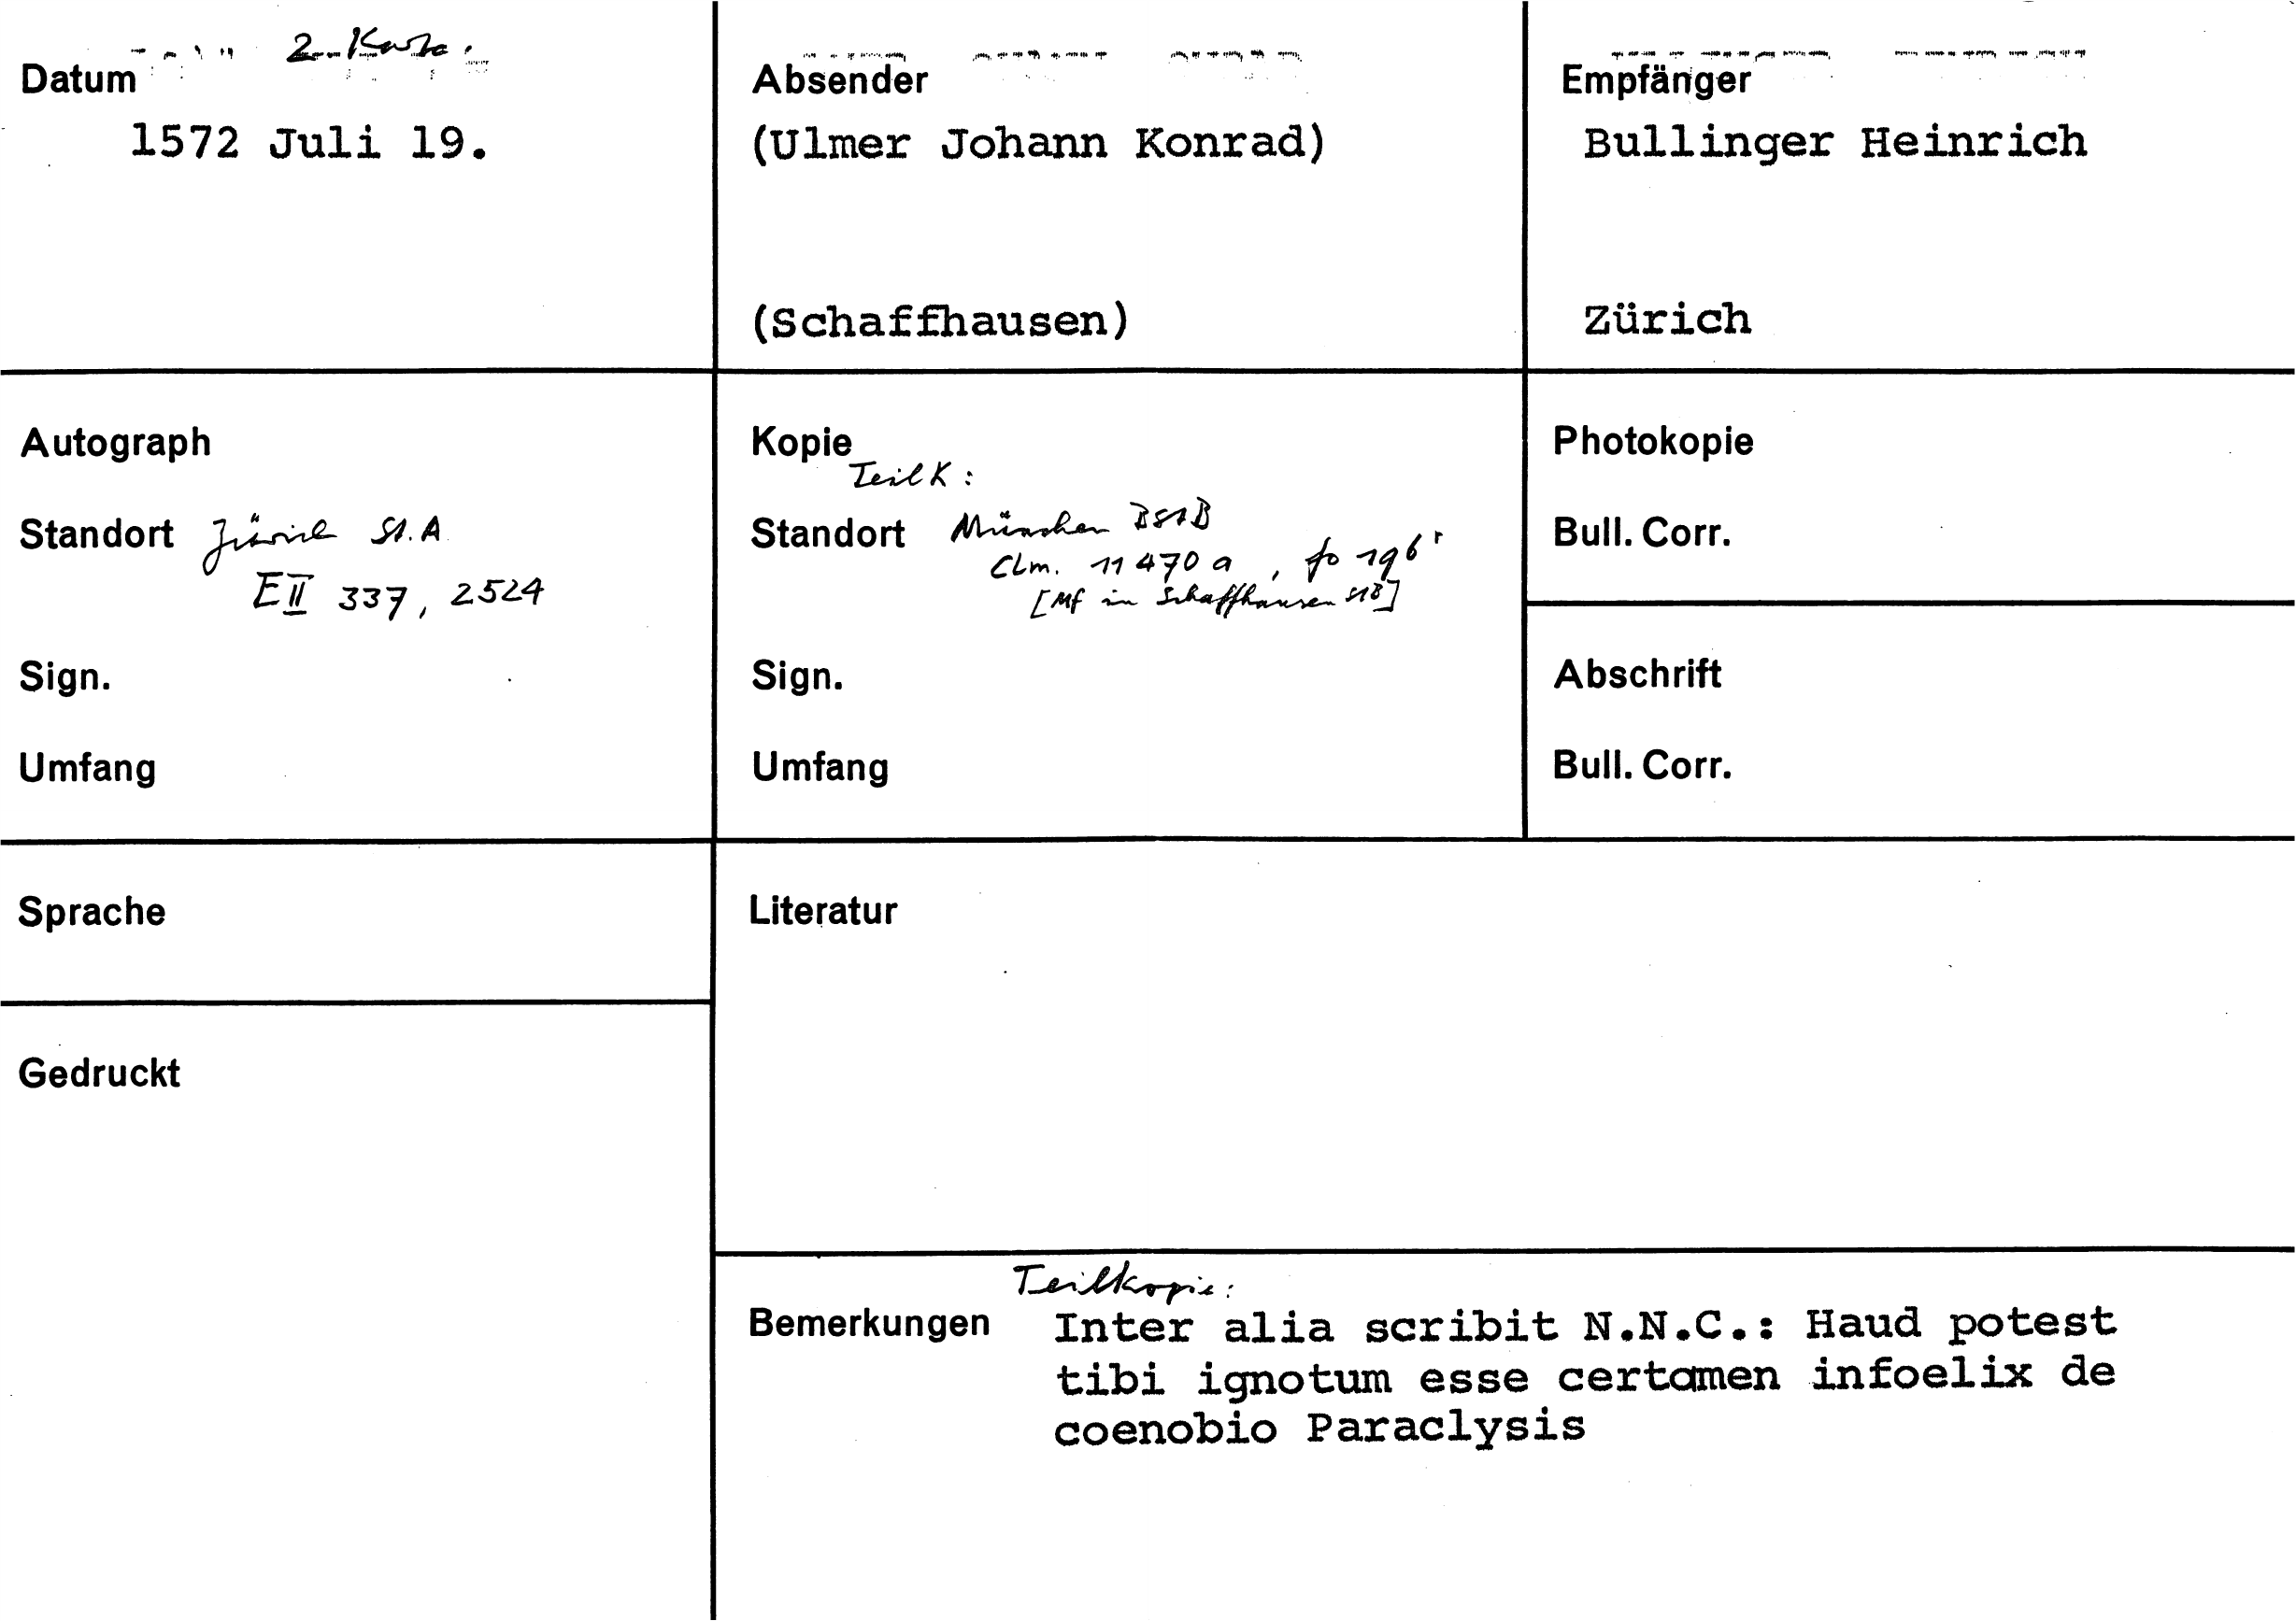 2. Karte.
Datum
1572 Juli 19.
Absender
(Ulmer Johann Konrad)
(Schaffhausen)
Empfänger
Bullinger Heinrich
Zürich
Autograph
Standort Zürich St.A
E II 337, 2524
Sign.
Umfang
Kopie
Teilk:
Standort München BStB
Clm. 11470 a, fo 196r
[Mf in Schaffhausen StB]
Sign.
Umfang
Photokopie
Bull. Corr.
Abschrift
Bull. Corr.
Sprache
Literatur
Gedruckt
Teilkopie:
Bemerkungen Inter alia scribit N.N.C.: Haud potest
tibi ignotum esse certamen infoelix de
coenobio Paraclysis